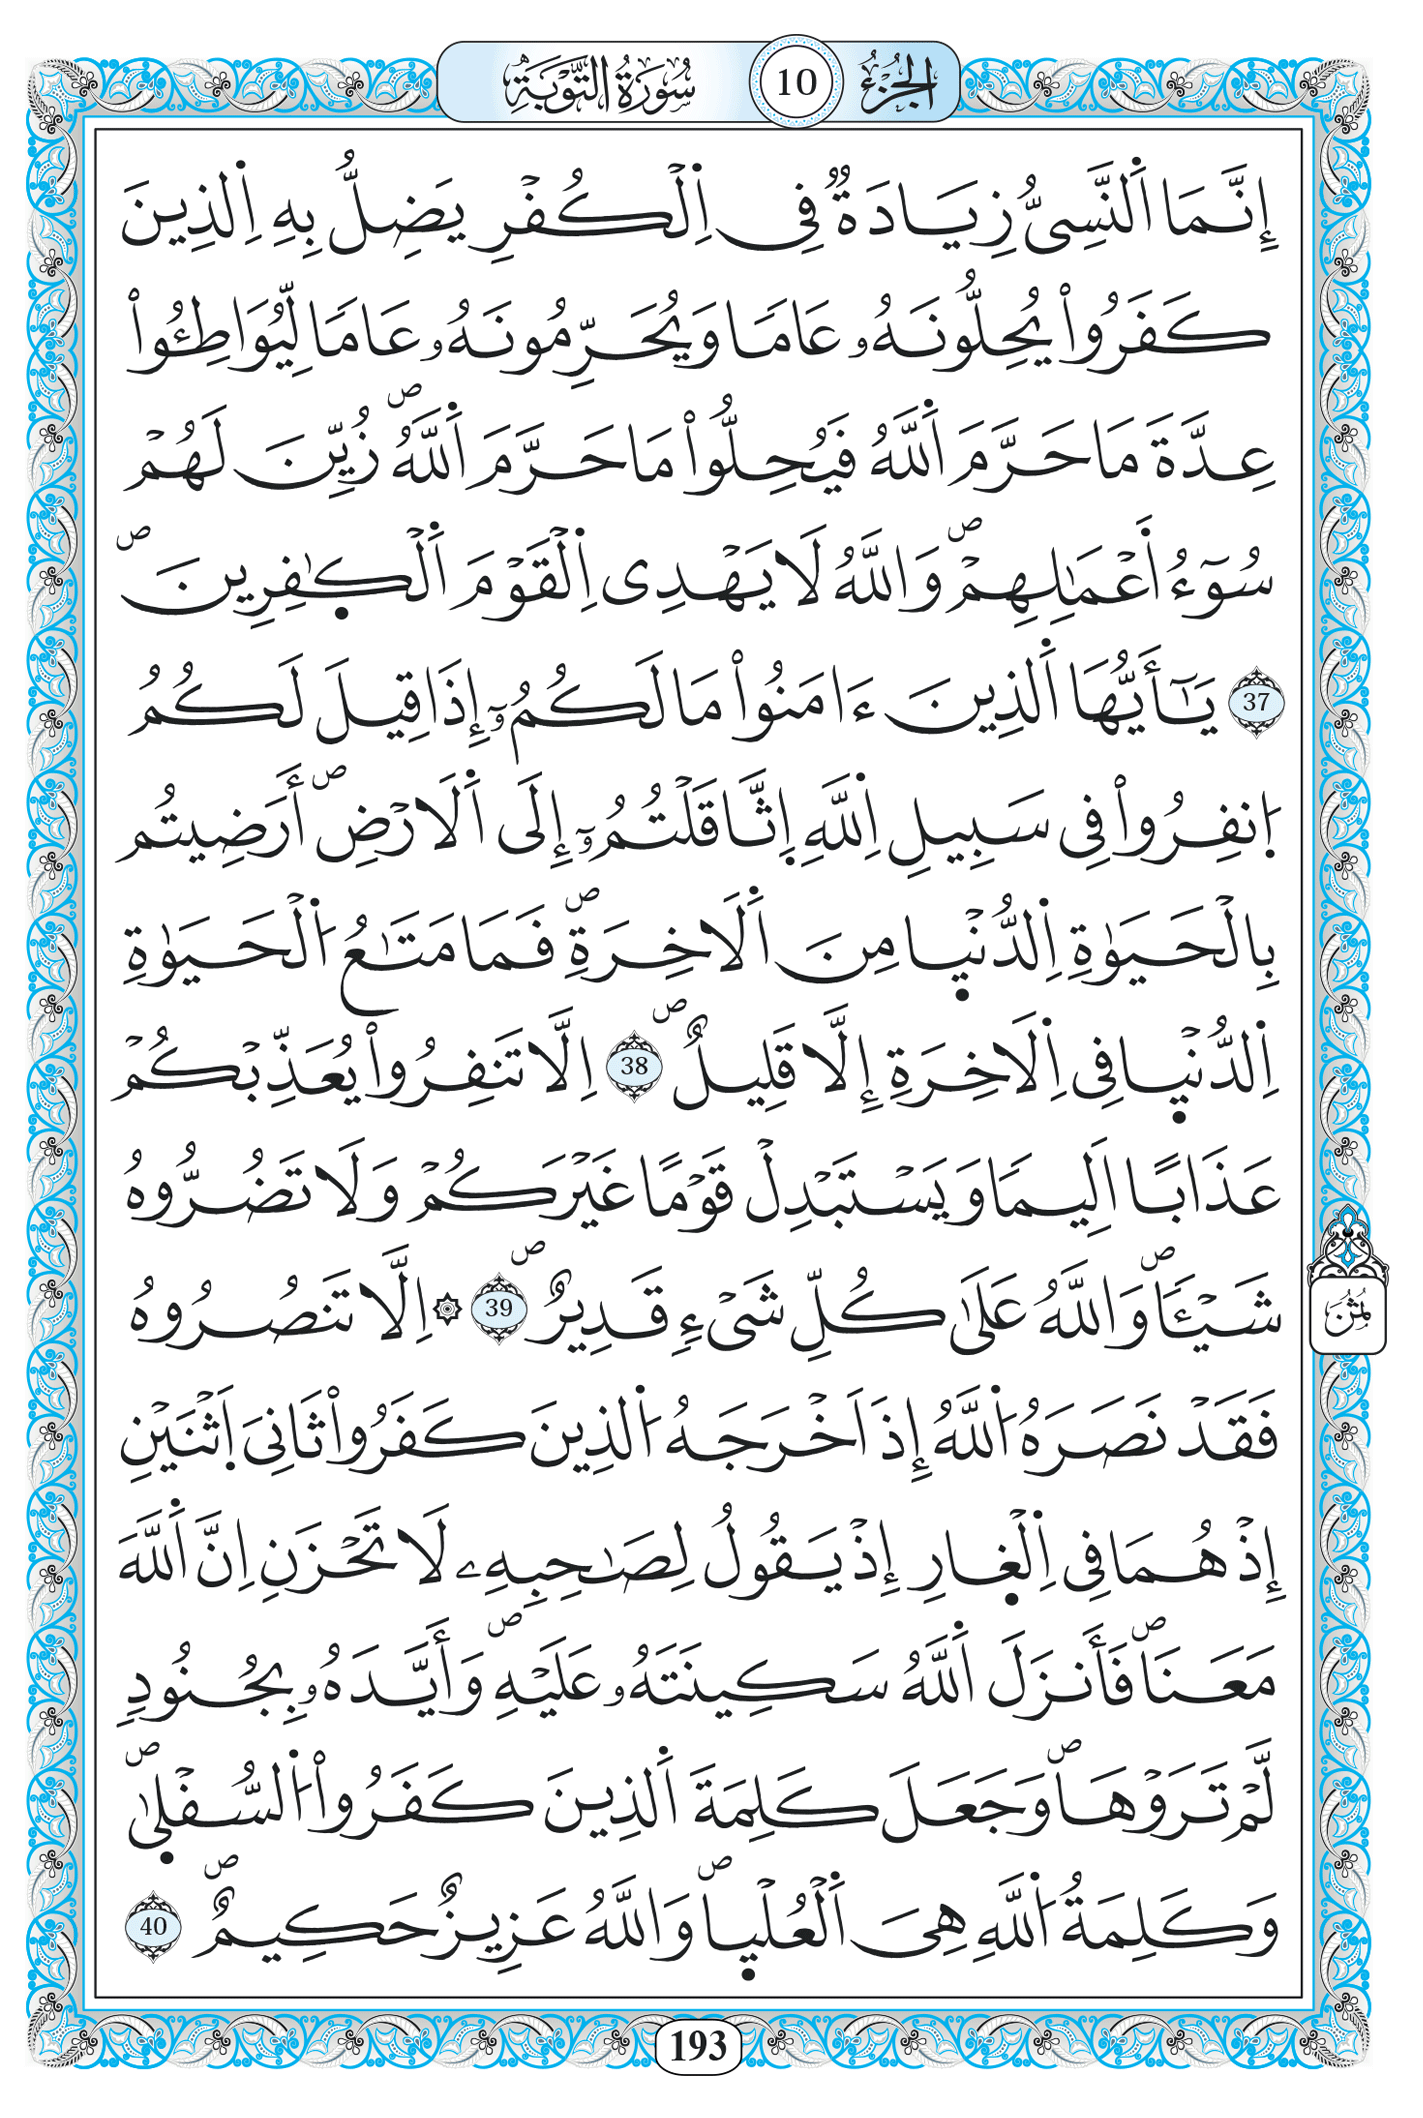 الجُزْءُ 10 سُورَةُ التَّوْبَةِ
إِنَّمَا اَ۬لنَّسِيُّ زِيَادَةٞ فِے اِ۬لْكُفْرِ يَضِلُّ بِهِ اِ۬لذِينَ
كَفَرُواْ يُحِلُّونَهُۥ عَاماٗ وَيُحَرِّمُونَهُۥ عَاماٗ لِّيُوَاطِـُٔواْ
عِدَّةَ مَا حَرَّمَ اَ۬للَّهُ فَيُحِلُّواْ مَا حَرَّمَ اَ۬للَّهُۖ زُيِّنَ لَهُمْ
سُوٓءُ أَعْمَٰلِهِمْۖ وَاللَّهُ لَا يَهْدِے اِ۬لْقَوْمَ اَ۬لْكٰ۪فِرِينَۖ
37 يَٰٓأَيُّهَا اَ۬لذِينَ ءَامَنُواْ مَا لَكُمُۥٓ إِذَا قِيلَ لَكُمُ
اُ۪نفِرُواْ فِے سَبِيلِ اِ۬للَّهِ اِ۪ثَّاقَلْتُمُۥٓ إِلَي اَ۬لَارْضِۖ أَرَضِيتُم
بِالْحَيَوٰةِ اِ۬لدُّنْي۪ا مِنَ اَ۬لَاخِرَةِۖ فَمَا مَتَٰعُ اُ۬لْحَيَوٰةِ
اِ۬لدُّنْي۪ا فِے اِ۬لَاخِرَةِ إِلَّا قَلِيلٌۖ 38 اِلَّا تَنفِرُواْ يُعَذِّبْكُمْ
عَذَاباً اَلِيماٗ وَيَسْتَبْدِلْ قَوْماً غَيْرَكُمْ وَلَا تَضُرُّوهُ
شَيْـٔاٗۖ وَاللَّهُ عَلَيٰ كُلِّ شَيْءٖ قَدِيرٌۖ 39 ۞ اِلَّا تَنصُرُوهُ
فَقَدْ نَصَرَهُ اُ۬للَّهُ إِذَ اَخْرَجَهُ اُ۬لذِينَ كَفَرُواْ ثَانِيَ اَ۪ثْنَيْنِ
إِذْ هُمَا فِے اِ۬لْغ۪ارِ إِذْ يَقُولُ لِصَٰحِبِهِۦ لَا تَحْزَنِ اِنَّ اَ۬للَّهَ
مَعَنَاۖ فَأَنزَلَ اَ۬للَّهُ سَكِينَتَهُۥ عَلَيْهِۖ وَأَيَّدَهُۥ بِجُنُودٖ
لَّمْ تَرَوْهَاۖ وَجَعَلَ كَلِمَةَ اَ۬لذِينَ كَفَرُواْ اُ۬لسُّفْل۪يٰۖ
وَكَلِمَةُ اُ۬للَّهِ هِيَ اَ۬لْعُلْي۪اۖ وَاللَّهُ عَزِيزٌ حَكِيمٌۖ 40
ثُمُن
193